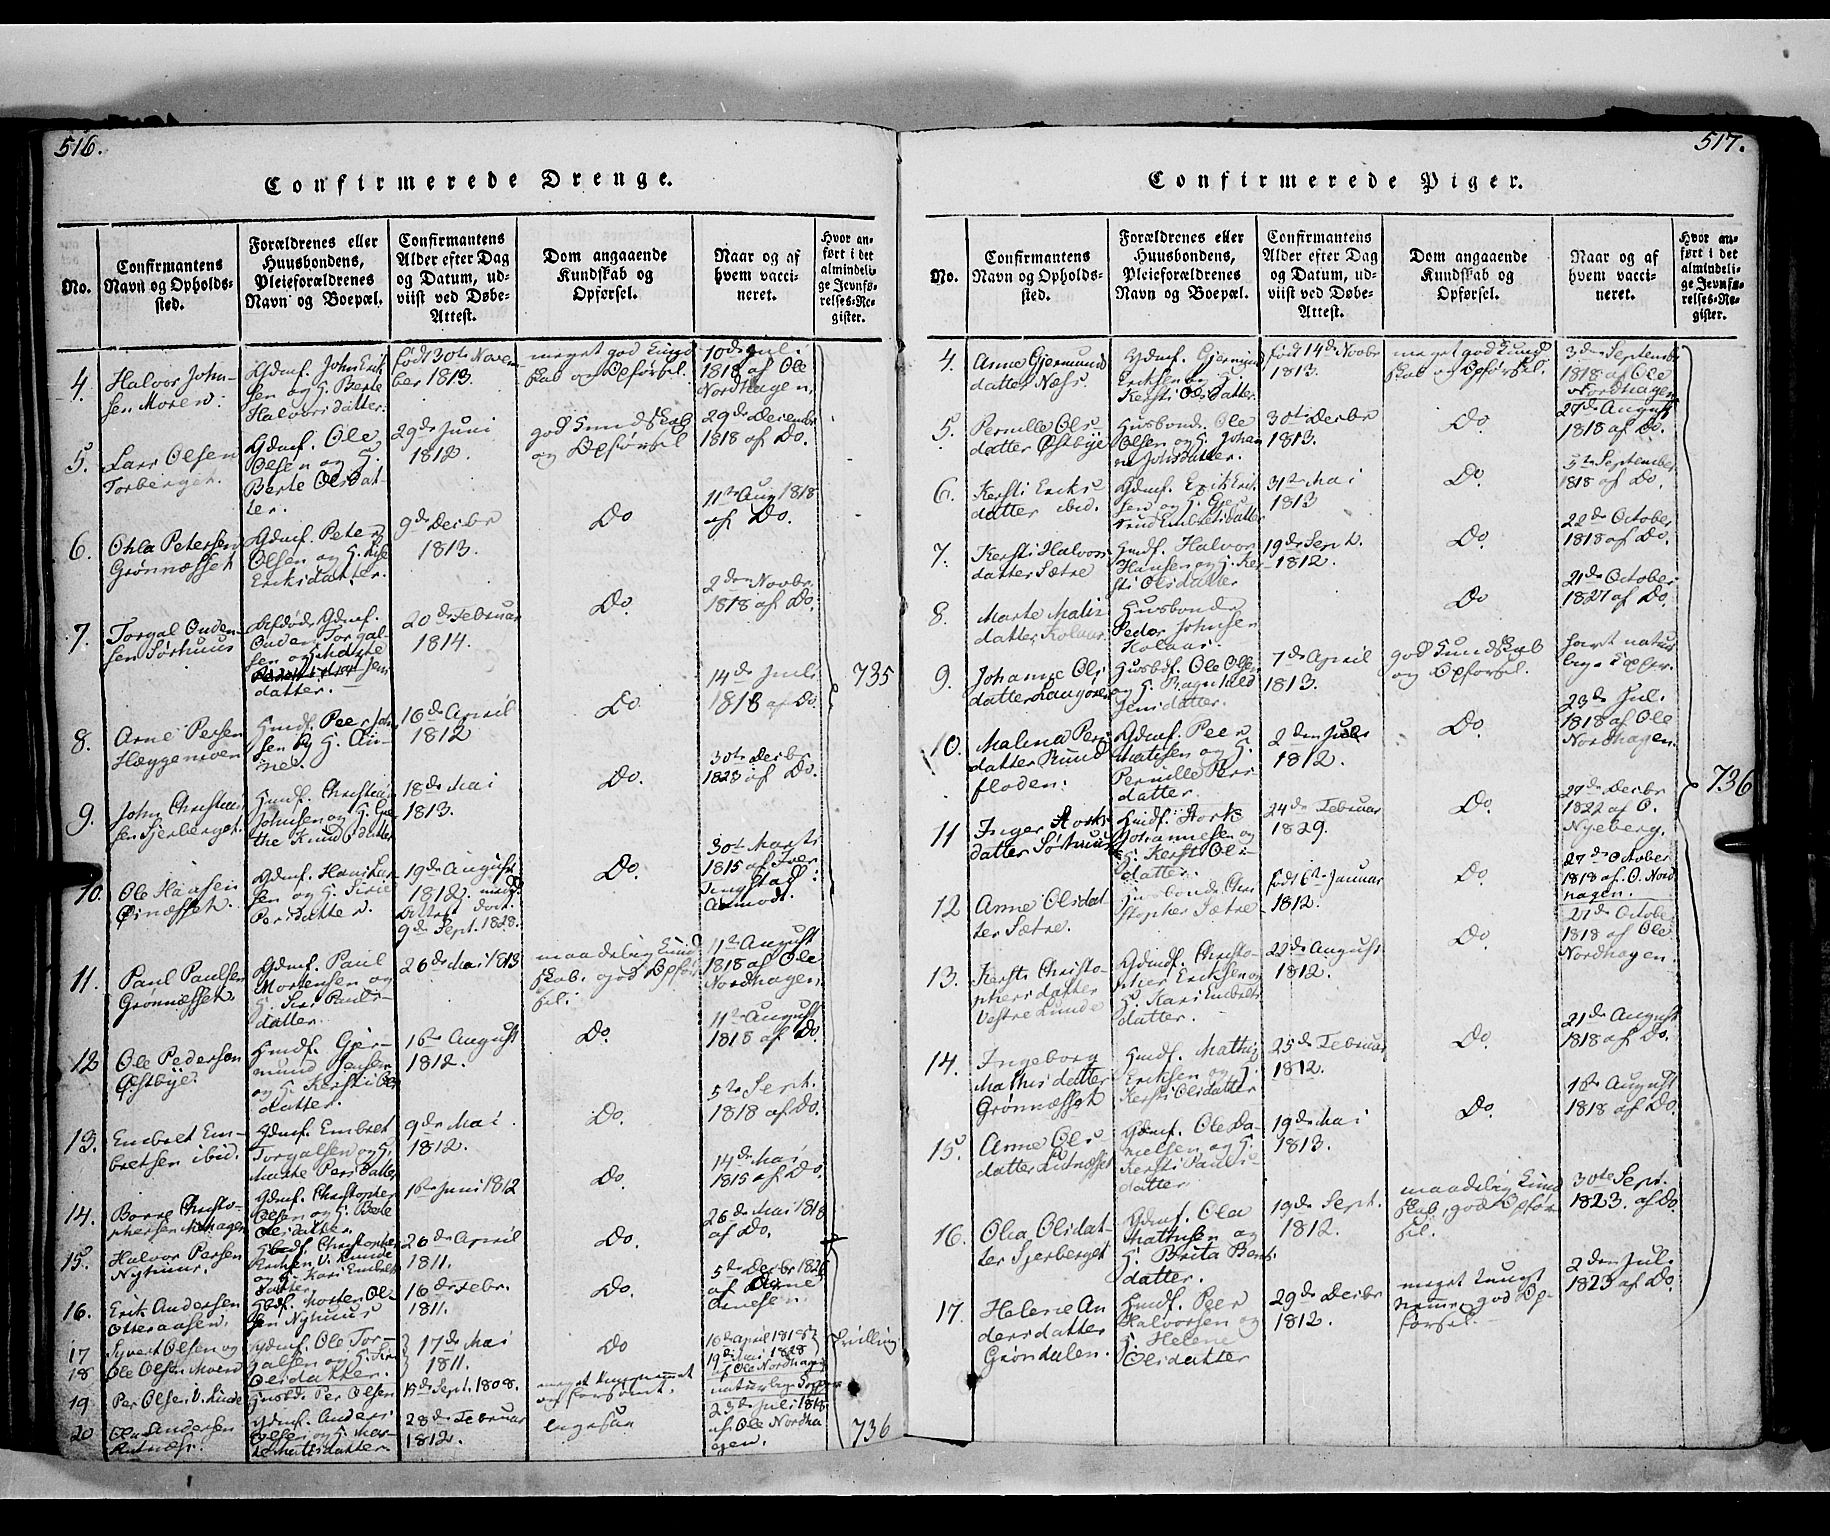 516.
Confirmerede Drenge.
No.
Confirmantens
Navn og Opholds-
sted.
Forældrenes eller
Huusbondens,
Pleieforældrenes
Navn og Boepæl.
Confirmantens
Alder efter Dag
og Datum, ud-
viist ved Døbe-
Attest.
Dom angaaende
Kundskab og
Opførsel.
Naar og af
hvem vacci-
neret.
Hvor an-
ført i det
almindeli-
ge Jevnfø-
relses-Re-
gister.
4.
Halvor John-
sen Moren
Gdmf. John Erik
sen og H. Berte
Halvorsdatter.
født 30te Novem
ber 1813.
meget god Kund
skab og Opførsel.
10de Jul.
1818 af Ole
Nordhagen.
5.
Lars Olsen
Torberget.
Gdmf. Ole
Olsen og H.
Berte Olsdat-
ter.
29de Juni
1812.
god Kundskab
og Opførsel
29de December
1818 af Do.
6.
Ohla Petersen
Grønnæsset
Gdmf. Peter
Olsen og H. Lise
Eriksdatter.
9de Decbr
1813.
Do
11te Aug 1818
af Do.
7.
Torgal Ouden-
sen Sørhuus
Afdøde Gdmf.
Ouden Torgal-
sen og Marte
Jens
datter.
20de Februar
1814.
Do.
2den Novbr.
1818 af Do.
8.
Arne Persen
Hæggemoen
Hmdf. Peer John
sen og H. An-
ne.
16de April
1812
Do.
14de Juli
1818 af Do
9.
John Christian
sen Sjerberget.
Hmdf. Christian
Johnsen og H. Gje-
the Knudsdatter
18de Mai
1813.
Do.
30te Decbr
1823 af Do.
10.
Ole Hansen
Øinæsset.
Gdmf. Hans Lar
sen og H. Sirie
Persdatter.
19de August
1812.
9de Sept. 1828.
Do.
30te Marts
1815 af Iver
Tingstad
Aamodt.
11.
Paul Paulsen
Grønnæsset
Gdmf. Paul
Mortensen og
H. Siri Pauls-
datter.
26de Mai 1813
maadelig Kund
skab. god Opfør
sel.
11te August
1818 af Ole
Nordhagen.
12
Ole Pedersen
Østbye.
Hmdf. Gjer-
mund Jensen
og H. Kersti Ols
datter.
16te August
1812.
Do.
11te August
1818 af Do.
13.
Embret Em-
bretsen ibid.
Gdmf. Embret
Torgalsen og H.
Marte Persdatter
9de Mai
1812.
Do.
5te Sept.
1818 af Do.
14.
Borre Christo-
phersen Mohagen
Gdmf. Christopher
Olsen og H. Berte
Olsdatter.
16te Juni 1812
Do.
14de Mai
1815 af Do.
15.
Halvor Persen
Nyhuus.
Gdmf. Christopher
Eriksen V. Lunde
og H. Kari Embret
datter.
26de April
1811.
Do.
26de Mai 1818
af Do.
16.
Erik Andersen
Otteraasen.
Gdf. Morten Ol-
sen Nyhuus
16de Febr.
1811.
Do.
5te Decbr 1826
af Arne
Arnesen.
17
18
Syvert Olsen og
Ole Olsen Moren
Gdmf. Ole Tor-
galsen og H. Siri
Olsdatter.
17de Mai
1811.
Do
16de April 1818
19de Mai 1828
af Ole Nordhagen
Tvilling
19
Per Olsen V. Lunde
Husbd. Per Olsen
15de Sept. 1808.
naturlige Kopper
20
Ola Andersen
Gdmf. Anders
Olsen og H. Mar-
te Matisdatter
28de Februar
1812.
23de Juli 1818
af Ole Nordha
gen.
735
736
517.
Confirmerede Piger.
No.
Confirmantens
Navn og Opholds-
sted.
Forældrenes eller
Huusbondens,
Pleieforældrenes
Navn og Boepæl.
Confirmantens
Alder efter Dag
og Datum, ud-
viist ved Døbe-
Attest.
Dom angaaende
Kundskab og
Opførsel.
Naar og af
hvem vacci-
neret.
Hvor an-
ført i det
almindeli-
ge Jevnfø-
relses-Re-
gister.
4.
Anne Gjermund
datter Næss
Gdmf. Gjermund
Eriksen og H.
Kersti Olsdatter.
født 14de Novbr
1813.
meget god Kund
skab og Opførsel.
3de September
1818 af Ole
Nordhagen
5.
Pernille Ols
datter Østbye
Husbond. Ole
Olsen og H. Johan
ne Johsdatter.
30te Decbr
1813.
Do
27de August
1818 af Do.
6.
Kersti Eriks
datter ibid.
Gdmf. Erik Erik
sen og H. Gjer
trud Embretsdatter
31te Mai
1813
Do.
5te September
1818 af Do.
7.
Kersti Halvors
datter Sætre
Hmdf. Halvor
Hansen og H. Ker
sti Olsdatter
19de Sept.
1812.
Do.
22de October
1818 af Do.
8.
Marte Matis
datter Kolaas.
Husbonde
Peder Johnsen
Kolaas.
Do
21de October
1827 af Do.
9.
Johanne Ols
datter Langoren
Husbdf. Ole Olsen
og H. Ragnhild
Jensdatter.
7de April
1813.
god Kundskab
og Opførsel.
havt natur
lige Kopper.
10.
Malena Pers
datter Rund
floden:
Gdmf. Peer
Matisen og H.
Pernille Pers
datter.
2den Juli
1812.
Do.
23de Jul.
1818 af Ole
Nordhagen.
11
Inger Stork
datter Sørhuus
Hmdf. Stork
Johannesen og
H. Kersti Ols-
datter.
24de Februar
1829.
Do.
27de Decbr
1822 af O.
Nyeberg.
12
Anne Olsdat
ter Sætre.
Husbonde Chri
stopher Sætre
født 6te Januar
1812.
Do.
27de October
1818 af O. Nord
hagen.
13.
Kersti Christo-
phersdatter
Vestre Lunde
Gdmf. Christo-
pher Eriksen og
H. Kari Embrets
datter.
22de August
1812.
Do.
21de October
1818 af Ole
Nordhagen.
14.
Ingeborg
Mathisdatter
Grønnæsset
Hmdf. Mathis
Eriksen og H.
Kersti Olsdatter
25de Februar
1812.
Do.
21de August
1818 af Do.
15.
Anne Ols-
datter Lutnæsset
Gdmf. Ole Da-
nielsen og H.
Kersti Pauls-
datter
19de Mai
1813.
Do.
16te August
1818 af Do.
16.
Olea Olsdat-
ter Sjerberget
Gdmf. Ola
Mathisen og
H. Brita Bent
datter.
19de Sept.
1812.
maadelig Kund
skab, god Opfør
sel.
30te Sept.
1823. af Do.
17.
Helene An
dersdatter
Grøndalen.
Hmdf. Peer
Halvorsen og
H. Helene
Olsdatter
29de Decbr
1812.
meget tungt
nemme, god Op-
førsel.
2den Juli
1823 af Do.
736